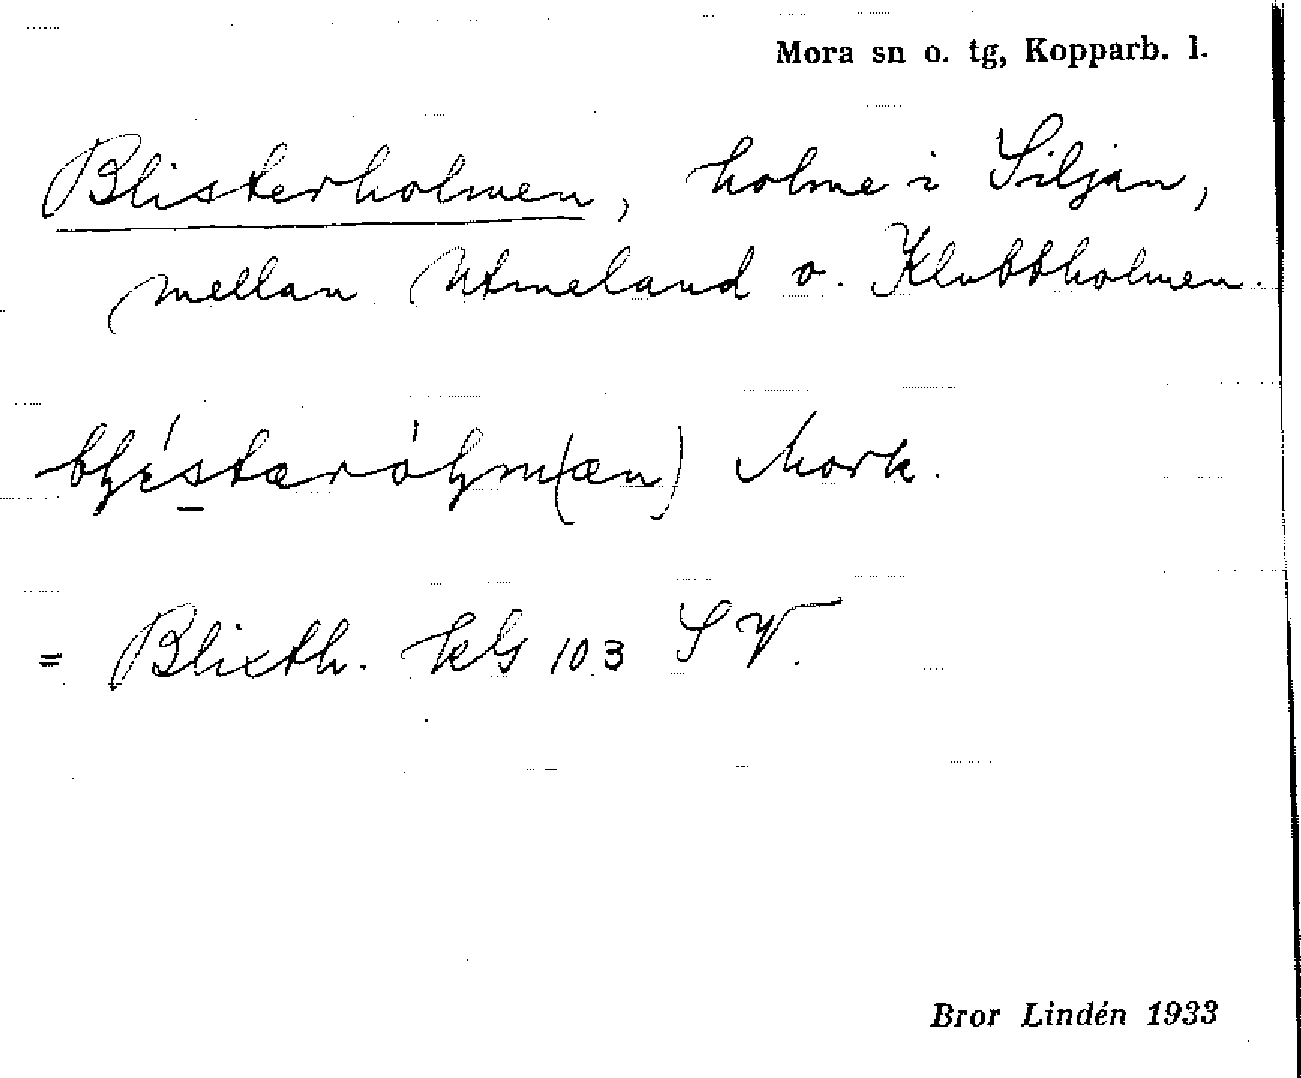 Mora sn o. tg, Kopparb. l.
Blisterholmen, holme i Siljan,
mellan Utmeland o. Klubbholmen.
Mork.
= Blixth. kG 103 SV.
Bror Lindén 1933